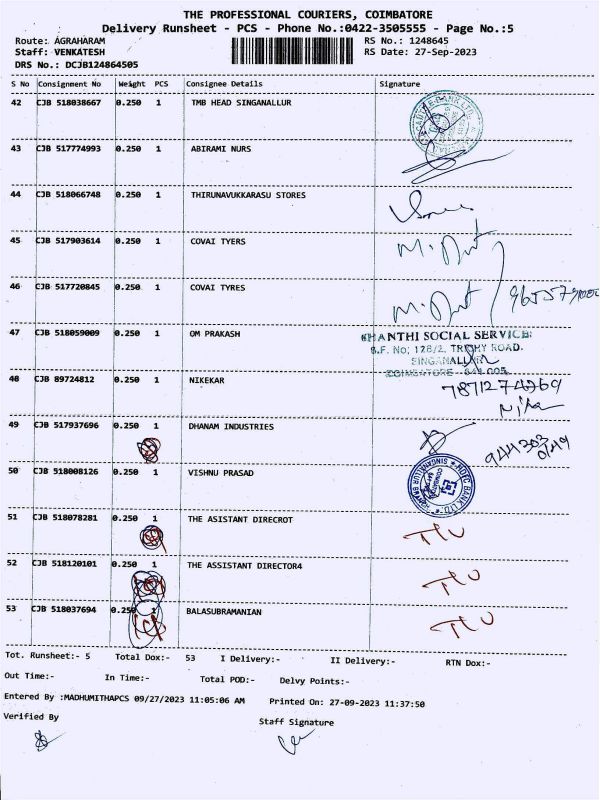 THE PROFESSIONAL COURIERS, COIMBATORE
Delivery Runsheet - PCS - Phone No.:0422-3505555 - Page No.:5
Route: AGRAHARAM RS No.: 1248645
Staff: VENKATESH RS Date: 27-Sep-2023
DRS No.: DCJB124864505
S No Consignment No Weight PCS Consignee Details Signature
42 CJB 518038667 0.250 1 TMB HEAD SINGANALLUR
43 CJB 517774993 0.250 1 ABIRAMI NURS
44 CJB 518066748 0.250 1 THIRUNAVUKKARASU STORES
45 CJB 517903614 0.250 1 COVAI TYERS
46 CJB 517720845 0.250 1 COVAI TYRES
47 CJB 518059009 0.250 1 OM PRAKASH
SHANTHI SOCIAL SERVICE
S.F. No; 128/2, TRICHY ROAD.
SINGANALLUR
COIMBATORE - 641 005
48 CJB 89724812 0.250 1 NIKEKAR
7871274269
49 CJB 517937696 0.250 1 DHANAM INDUSTRIES
50 CJB 518008126 0.250 1 VISHNU PRASAD
HDFC BANK LTD.
51 CJB 518078281 0.250 1 THE ASISTANT DIRECROT
52 CJB 518120101 0.250 1 THE ASSISTANT DIRECTOR4
53 CJB 518037694 0.250 1 BALASUBRAMANIAN
Tot. Runsheet:- 5 Total Dox:- 53 I Delivery:- II Delivery:- RTN Dox:-
Out Time:- In Time:- Total POD:- Delvy Points:-
Entered By :MADHUMITHAPCS 09/27/2023 11:05:06 AM Printed On: 27-09-2023 11:37:50
Verified By Staff Signature